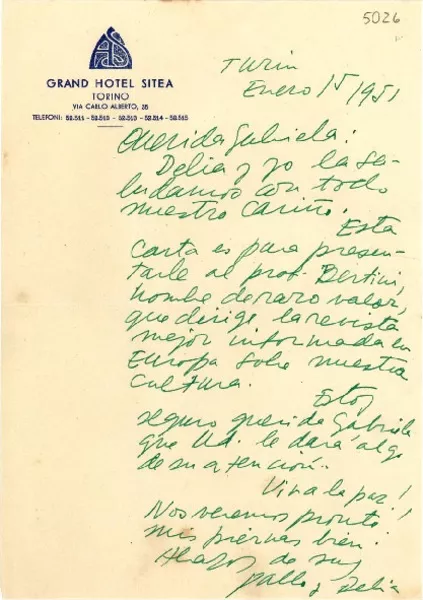 5026
GRAND HOTEL SITEA
TORINO
VIA CARLO ALBERTO, 35
TELEFONI: 52.511 - 52.512 - 52.513 - 52.514 - 52.515
Turin
Enero 15/1951
Querida Gabriela:
Delia y yo la sa-
ludamos con todo
nuestro cariño.
Esta
carta es para presen-
tarle al prof. Bertini,
hombre de raro valor,
que dirige la revista
mejor informada en
Europa sobre nuestra
cultura.
Estoy
seguro querida Gabriela
que Ud. le dará algo
de su atención.
Viva la paz!
Nos veremos pronto
mis piernas bien.
Abrazos de sus
Pablo y Delia